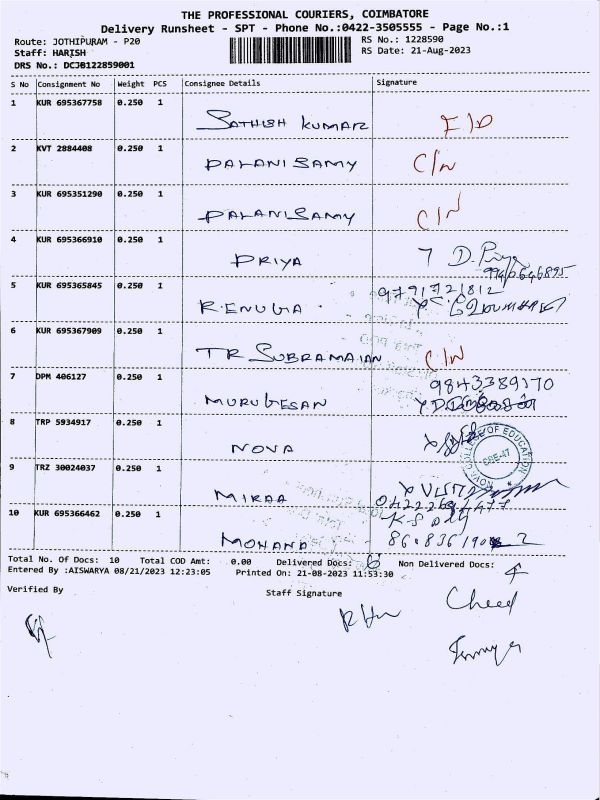 THE PROFESSIONAL COURIERS, COIMBATORE
Delivery Runsheet - SPT - Phone No.:0422-3505555 - Page No.:1
Route: JOTHIPURAM - P20 RS No.: 1228590
Staff: HARISH RS Date: 21-Aug-2023
DRS No.: DCJB122859001
S No Consignment No Weight PCS Consignee Details Signature
1 KUR 695367758 0.250 1 SATHISH KUMAR I/D
2 KVT 2884408 0.250 1 PALANISAMY C/N
3 KUR 695351290 0.250 1 PALANISAMY C/N
4 KUR 695366910 0.250 1 PRIYA D. Priya
5 KUR 695365845 0.250 1 RENUGA 9791721812
6 KUR 695367909 0.250 1 TR SUBRAMAIAN C/N
7 DPM 406127 0.250 1 MURUGESAN 9843389170
8 TRP 5934917 0.250 1 NOVA
COLLEGE OF EDUCATION
CBE-47
9 TRZ 30024037 0.250 1 MIRAA
10 KUR 695366462 0.250 1 MOHANA
Total No. Of Docs: 10 Total COD Amt: 0.00 Delivered Docs: 6 Non Delivered Docs: 4
Entered By :AISWARYA 08/21/2023 12:23:05 Printed On: 21-08-2023 11:53:30
Verified By Staff Signature